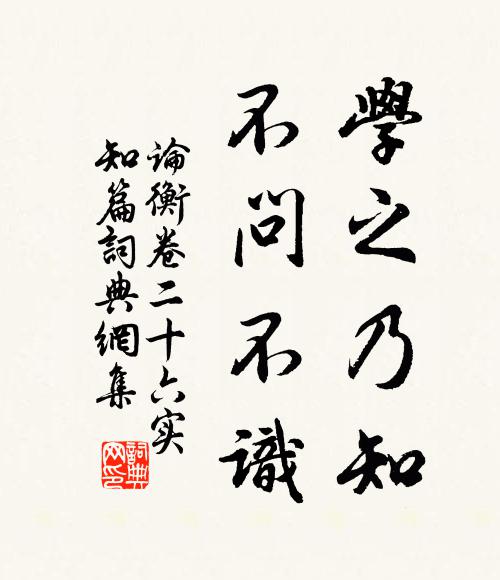 學之乃知
不問不識
論衡卷二十六实
知篇詞典網集
詞典
网印